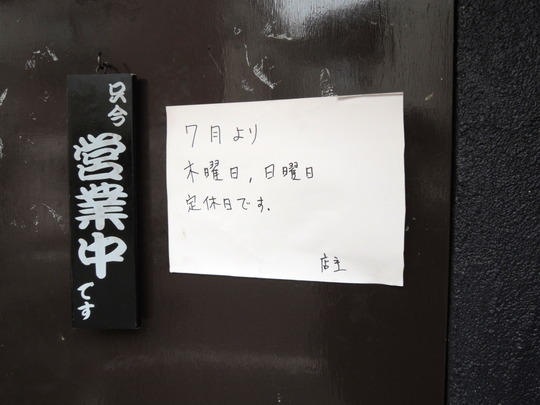 只今営業中です
7月より
木曜日,日曜日
定休日です.
店主